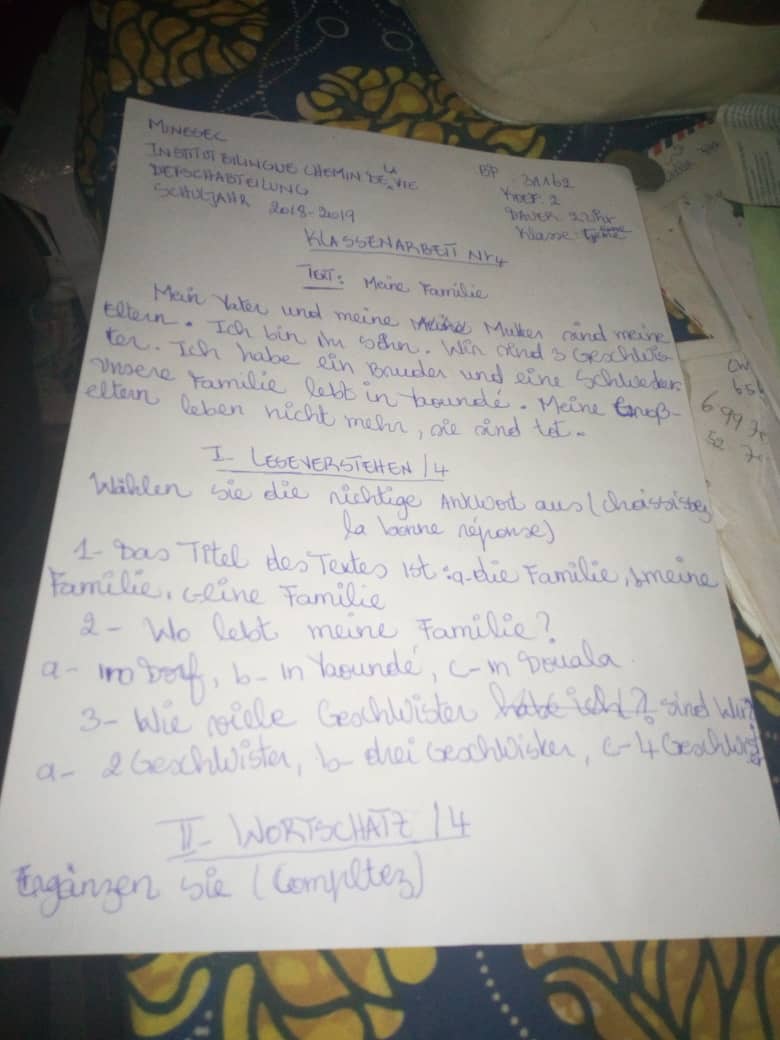 MINESEC
INSTITUT BILINGUE CHEMIN DE VIE
DETSCHABTEILUNG
SCHULJAHR 2018-2019
BP 31162
KOEF: 2
DAUER: 2 Uhr
Klasse:
KLASSENARBEIT Nr4
TEXT: Meine Familie
Mein Vater und meine Mutter sind meine
Eltern. Ich bin ihr Sohn. Wir sind 3 Geschwis-
ter. Ich habe ein Bruder und eine Schwester
Unsere Familie lebt in Yaoundé. Meine Groß-
eltern leben nicht mehr, sie sind tot.
I- LESEVERSTEHEN /4
Wählen sie die richtige Antwort aus (choisissez
la bonne réponse)
1- Das Titel des Textes ist: a-die Familie, b-meine
Familie, c-eine Familie
2- Wo lebt meine Familie?
a- Dorf, b- in Yaoundé, c- in Douala.
3- Wie viele Geschwister habe ich? sind wir?
a- 2 Geschwister, b- drei Geschwister, c- 4 Geschwist
II- WORTSCHATZ /4
Ergänzen sie (Complétez)
654
6 99 7
52 7